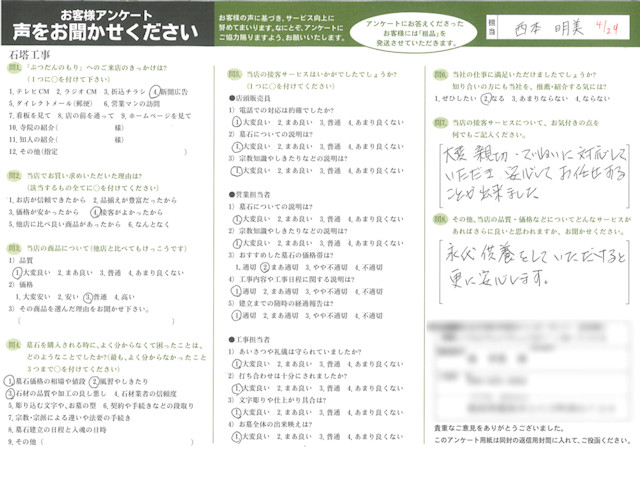 お客様アンケート
声をお聞かせください
お客様の声に基づき、サービス向上に
努めてまいります。なにとぞ、アンケートに
ご協力賜りますよう、お願いいたします。
アンケートにお答えくださった
お客様には「粗品」を
発送させていただきます。
担当
西本 明美
4/29
石塔工事
問1. 「ぶつだんのもり」へのご来店のきっかけは?
(1つに○を付けて下さい)
1.テレビCM 2.ラジオCM 3.折込チラシ 4.新聞広告
5.ダイレクトメール(郵便) 6.営業マンの訪問
7.看板を見て 8.店の前を通って 9.ホームページを見て
10.寺院の紹介( 様)
11.知人の紹介( 様)
12.その他(指定 )
問2. 当店でお買い求めいただいた理由は?
(該当するもの全てに○を付けてください)
1.お店が信頼できたから 2.品揃えが豊富だったから
3.価格が安かったから 4.接客がよかったから
5.他店に比べ良い商品があったから 6.なんとなく
問3. 当店の商品について(他店と比べてもけっこうです)
1)品質
1.大変良い 2.まあ良い 3.普通 4.あまり良くない
2)価格
1.大変安い 2.安い 3.普通 4.高い
3)その商品を選んだ理由をお聞かせ下さい。
( )
問4. 墓石を購入される時に、よく分からなくて困ったことは、
どのようなことでしたか?(最も、よく分からなかったこと
3つまで○を付けてください)
1.墓石価格の相場や値段 2.風習やしきたり
3.石材の品質や加工の良し悪し 4.石材業者の信頼度
5.彫り込む文字や、お墓の型 6.契約や手続きなどの段取り
7.宗教・宗派による違いや法要の手続き
8.墓石建立の日程と入魂の日時
9.その他( )
問5. 当店の接客サービスはいかがでしたでしょうか?
(1つに○を付けてください)
●店頭販売員
1)電話での対応は的確でしたか?
1.大変良い 2.まあ良い 3.普通 4.あまり良くない
2)墓石についての説明は?
1.大変良い 2.まあ良い 3.普通 4.あまり良くない
3)宗教知識やしきたりなどの説明は?
1.大変良い 2.まあ良い 3.普通 4.あまり良くない
●営業担当者
1)墓石についての説明は?
1.大変良い 2.まあ良い 3.普通 4.あまり良くない
2)宗教知識やしきたりなどの説明は?
1.大変良い 2.まあ良い 3.普通 4.あまり良くない
3)おすすめした墓石の価格帯は?
1.適切 2.まあ適切 3.やや不適切 4.不適切
4)工事内容や工事日程に関する説明は?
1.適切 2.まあ適切 3.やや不適切 4.不適切
5)建立までの随時の経過報告は?
1.適切 2.まあ適切 3.やや不適切 4.不適切
●工事担当者
1)あいさつや礼儀は守られていましたか?
1.大変良い 2.まあ良い 3.普通 4.あまり良くない
2)打ち合わせは十分にされましたか?
1.大変良い 2.まあ良い 3.普通 4.あまり良くない
3)文字彫りや仕上がり具合は?
1.大変良い 2.まあ良い 3.普通 4.あまり良くない
4)お墓全体の出来映えは?
1.大変良い 2.まあ良い 3.普通 4.あまり良くない
問6. 当社の仕事に満足いただけましたでしょうか?
知り合いの方にも当社を、推薦・紹介する気には?
1.ぜひしたい 2.なる 3.あまりならない 4.ならない
問7. 当店の接客サービスについて、お気付きの点を
何でもご記入ください。
大変 親切・ていねいに対応して
いただき 安心して お任せする
ことが出来ました。
問8. その他、当店の品質・価格などについてどんなサービスが
あればさらに良いと思われますか、お聞かせください。
永代供養をしていただけると
更に安心します。
貴重なご意見をありがとうございました。
このアンケート用紙は同封の返信用封筒に入れて、ご投函ください。